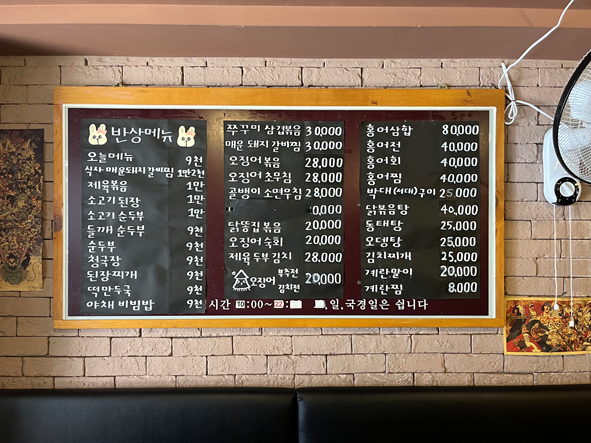 반상메뉴
오늘메뉴 9천
식사 매운돼지 갈비찜 1만2천
제육볶음 1만
소고기 된장 1만
소고기 순두부 1만
들깨 순두부 9천
순두부 9천
청국장 9천
된장찌개 9천
떡만두국 9천
야채 비빔밥 9천
쭈꾸미 삼겹볶음 30,000
매운 돼지 갈비찜 30,000
오징어 볶음 28,000
오징어 초무침 28,000
골뱅이 소면무침 28,000
0,000
닭똥집 볶음 20,000
오징어 숙회 20,000
제육 두부 김치 28,000
오징어 부추전 김치전 20,000
홍어삼합 80,000
홍어전 40,000
홍어회 40,000
홍어찜 40,000
박대(서대)구이 25,000
닭볶음탕 40,000
동태탕 25,000
오뎅탕 25,000
김치찌개 25,000
계란말이 20,000
계란찜 8,000
시간 10:00~22: ,일,국경일은 쉽니다